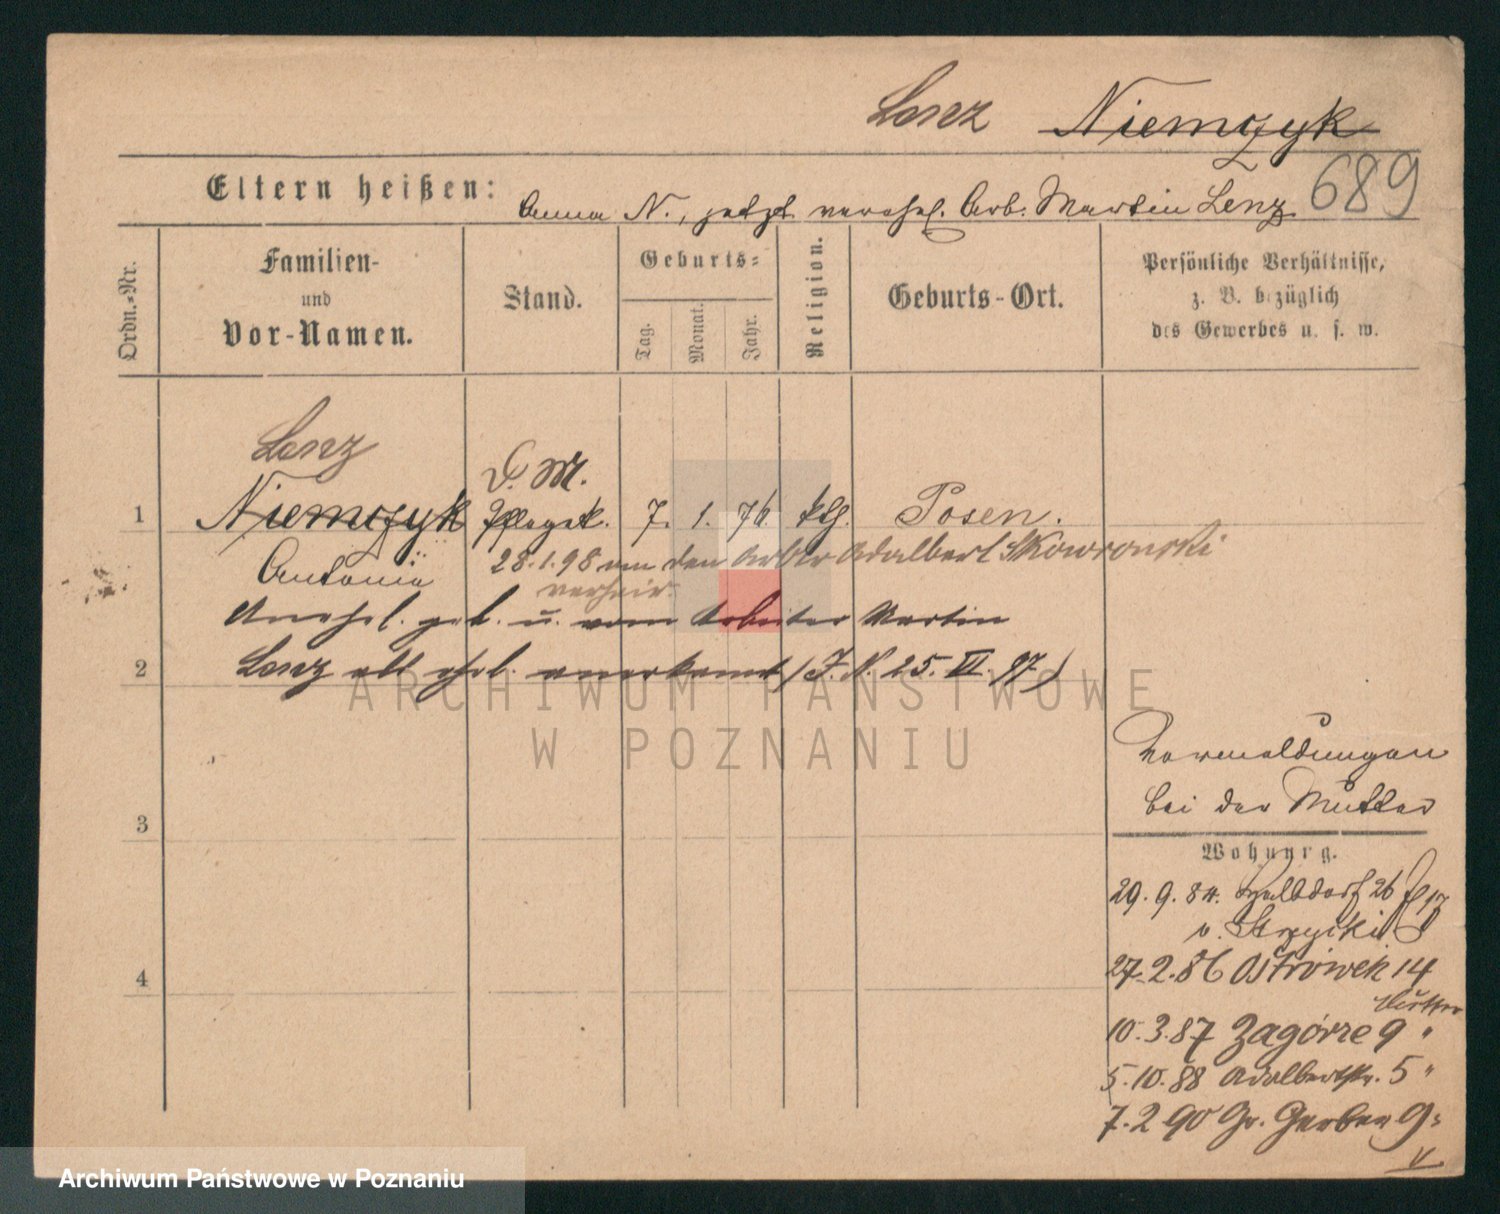 Lenz Niemczyk
689
Eltern heißen: Anna N., jetzt verehel. Arb. Martin Lenz
Ordn.=Nr.
Familien-
und
Vor-Namen.
Stand.
Geburts=
Tag.
Monat.
Jahr.
Religion.
Geburts-Ort.
Persönliche Verhältnisse,
z. B. bezüglich
des Gewerbes u. s. w.
Lenz
D. M.
1 Niemczyk Pflegek. 7. 1. 76 kth. Posen.
Antonie 28.1.98 von den Arbtr Adalbert Skowronski
verheir.
Unehel. geb. u. vom Arbeiter Martin
2 Lenz als ehel. anerkannt (J. N. 25. VI. 97)
3
4
Vormeldungen
bei der Mutter
Wohnung.
29. 9. 84. Halbdorf 26
v. Strzycki
27. 2. 86 Ostrowek 14
Mutter
10. 3. 87 Zagórze 9 "
5. 10. 88 Adalbertstr. 5 "
7. 2 90 Gr. Gerber 9
ARCHIWUM PAŃSTWOWE
W POZNANIU
Archiwum Państwowe w Poznaniu